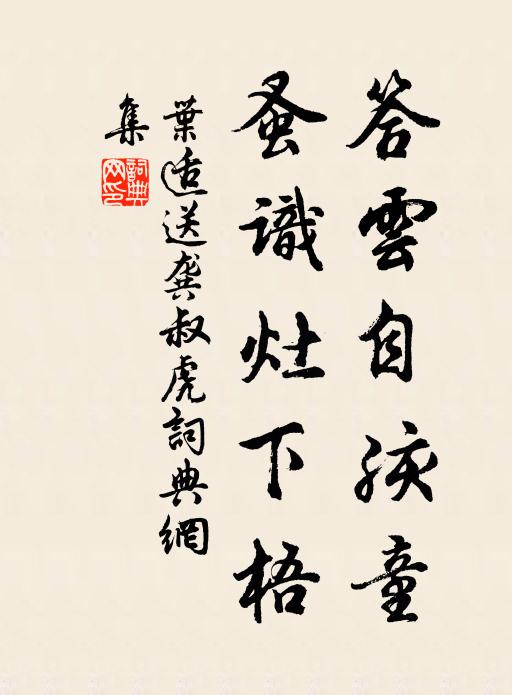 答雲自孩童
蚤識灶下梧
葉适送龔叔虎詞典網
集
詞典網印